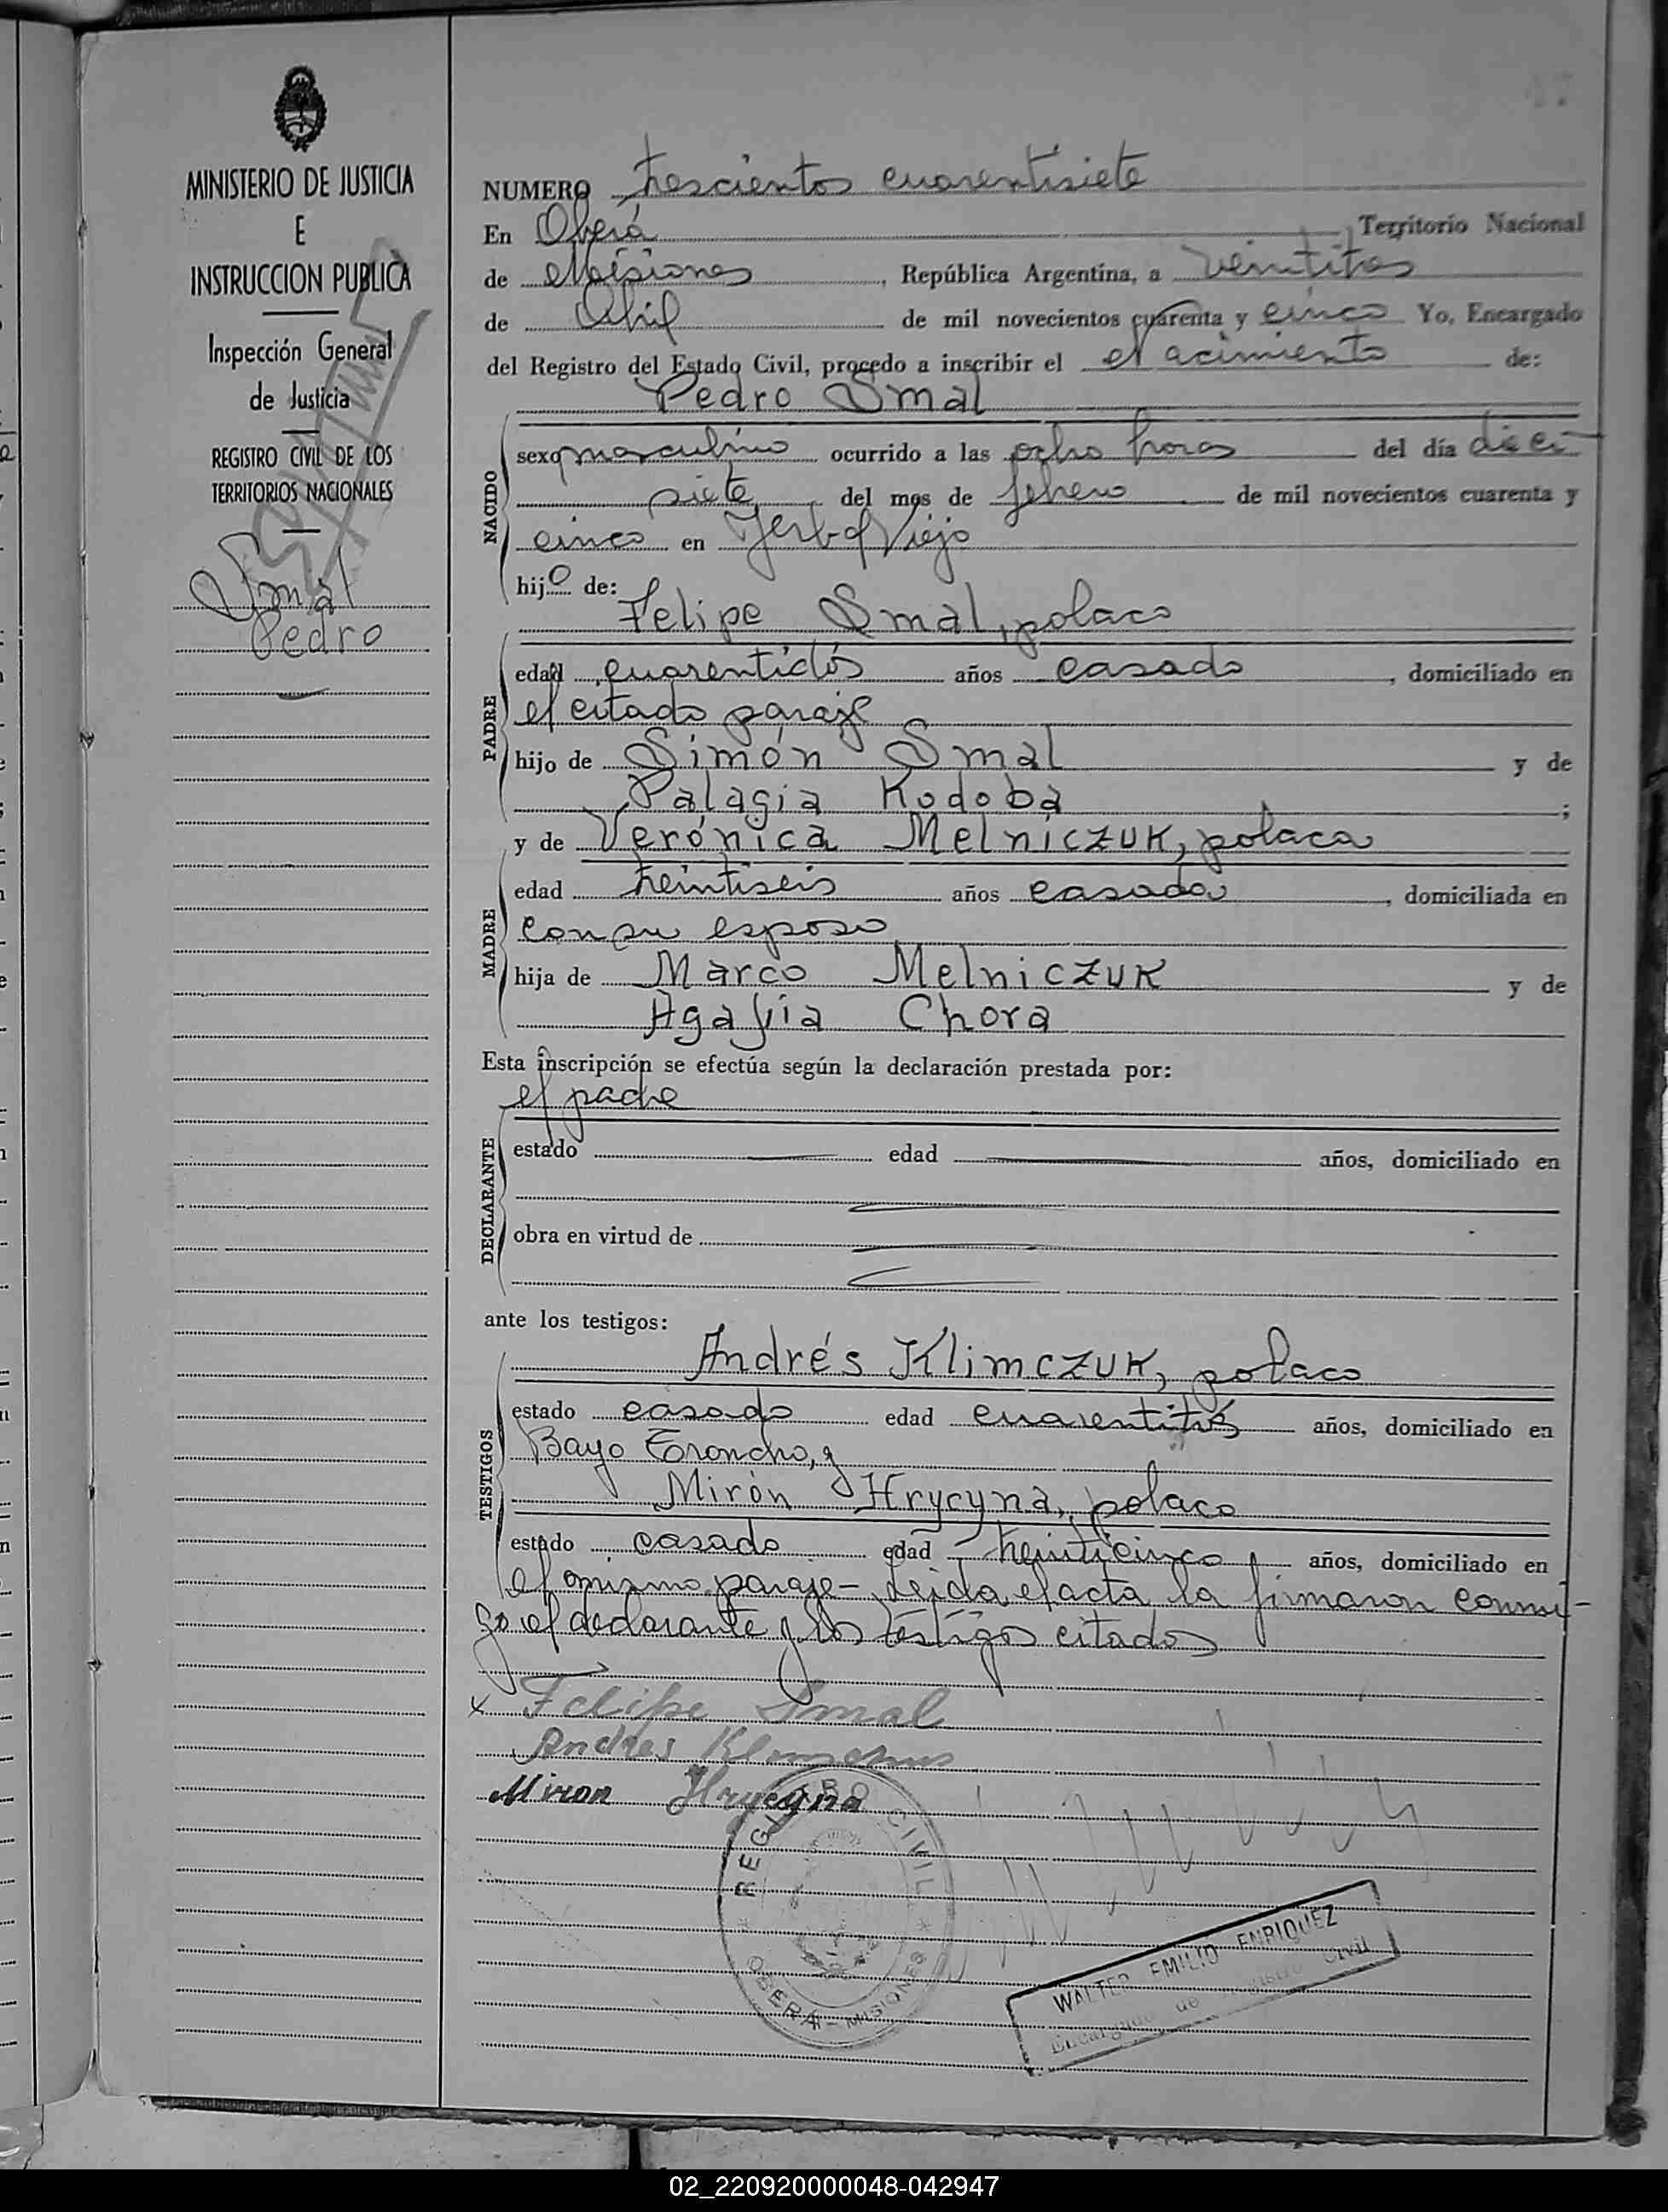 MINISTERIO DE JUSTICIA
E
INSTRUCCION PUBLICA
Inspección General
de Justicia
REGISTRO CIVIL DE LOS
TERRITORIOS NACIONALES
Smal
Pedro
NUMERO trescientos cuarentisiete
En Oberá Territorio Nacional
de Misiones, República Argentina, a veintitres
de Abril de mil novecientos cuarenta y cinco Yo, Encargado
del Registro del Estado Civil, procedo a inscribir el nacimiento de:
Pedro Smal
NACIDO
sexo masculino ocurrido a las ocho horas del día dieci-
siete del mes de febrero de mil novecientos cuarenta y
cinco en Yerbal Viejo
hijo de:
Felipe Smal, polaco
PADRE
edad cuarentidós años casado, domiciliado en
el citado paraje
hijo de Simón Smal y de
Palagia Kodoba;
y de Verónica Melniczuk, polaca
MADRE
edad treintiseis años casada, domiciliada en
con su esposo
hija de Marco Melniczuk y de
Agafia Chora
Esta inscripción se efectúa según la declaración prestada por:
el padre
DECLARANTE
estado edad años, domiciliado en
obra en virtud de
ante los testigos:
TESTIGOS
Andrés Klimczuk, polaco
estado casado edad cuarentitrés años, domiciliado en
Bayo Troncho, y
Mirón Hrycyna, polaco
estado casado edad treinticinco años, domiciliado en
el mismo paraje- Leida el acta la firmaron conmi-
go el declarante y los testigos citados
x Felipe Smal
Andres
Miron Hrycyna
REGISTRO CIVIL
OBERÁ - MISIONES
WALTER EMILIO ENRIQUEZ
Encargado de Registro Civil
02_220920000048-042947